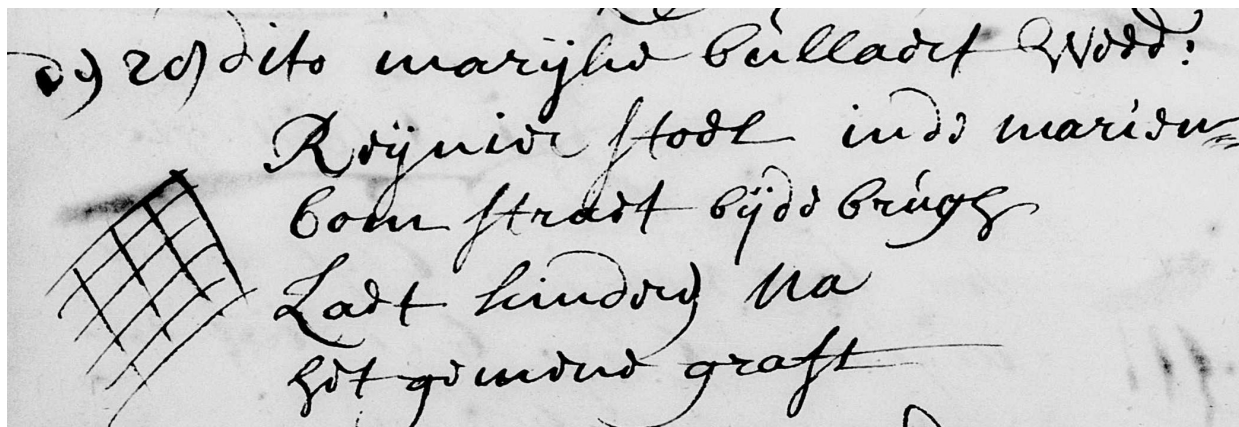 den 28 dito marijke bullaert Wede:
Reijnier stoel inde marien=
bom straet bijde brugh
Laet kinderen Na
het gemene graft